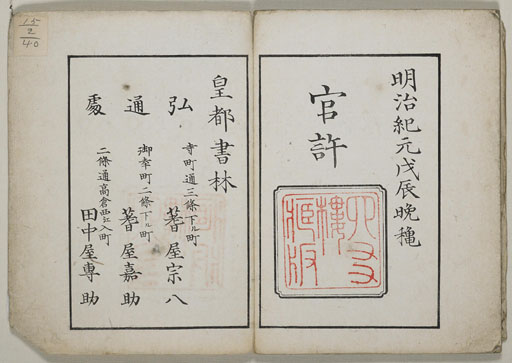 明治紀元戊辰晩穐
官許
樓
藏版
皇都書林
弘 寺町通三條下ル町 蓍屋宗八
通 御幸町二條下ル町 蓍屋嘉助
處 二條通高倉西江入町 田中屋專助
15
2
40